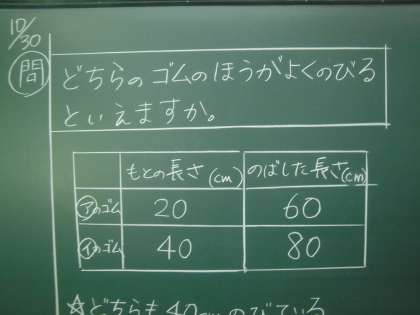 10/30
問 どちらのゴムのほうがよくのびる
といえますか。
もとの長さ(cm) のばした長さ(cm)
㋐のゴム 20 60
㋑のゴム 40 80
☆どちらも40cmのびている